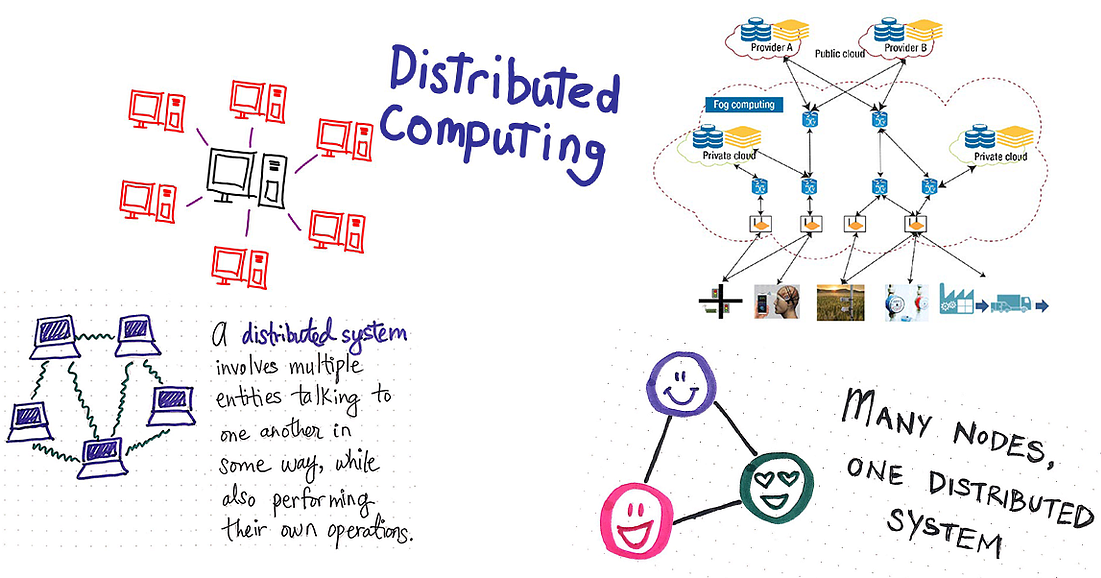 Distributed
Computing
Provider A
Public cloud
Provider B
Fog computing
Private cloud
Private cloud
A distributed system
involves multiple
entities talking to
one another in
some way, while
also performing
their own operations.
MANY NODES,
ONE DISTRIBUTED
SYSTEM